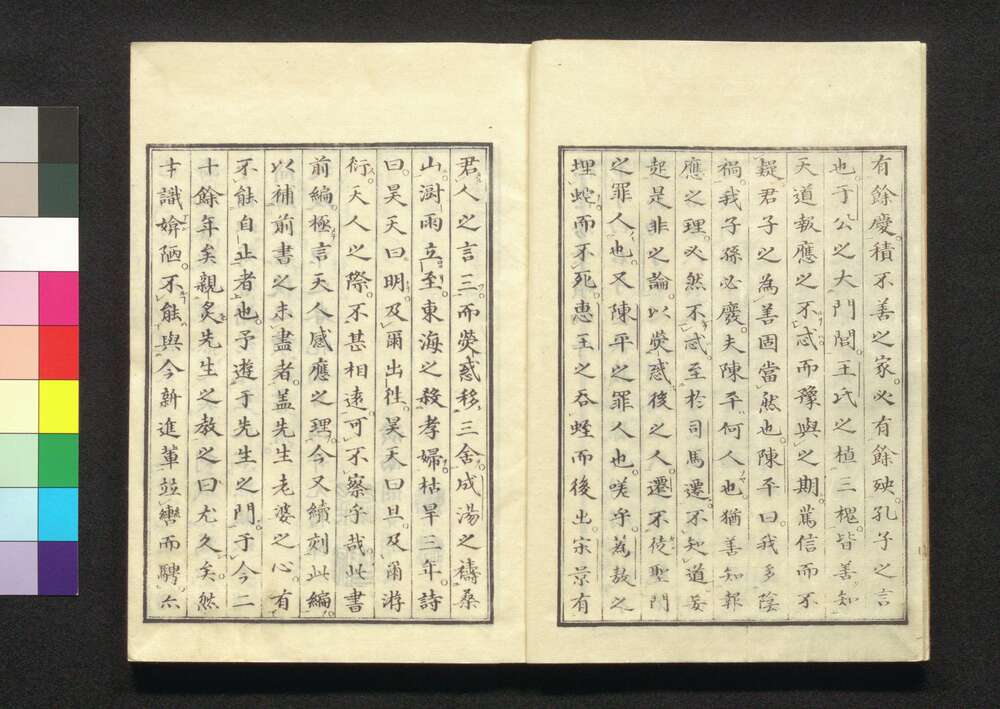 有餘慶。積不善之家。必有餘殃。孔子之言
也。于公之大門閭。王氏之植三槐。皆善知
天道報應之不忒。而豫與之期。篤信而不
疑。君子之為善固當然也。陳平曰。我多陰
禍。我子孫必廢。夫陳平何人也。猶善知報
應之理。必然不忒。至於司馬遷。不知道。妄
起是非之論。以熒惑後之人。遷不徒聖門
之罪人也。又陳平之罪人也。嗟乎。蒍敖之
埋蛇。而不死。惠王之吞蛭而後出。宋景有
君人之言三。而熒惑移三舍。成湯之禱桑
山。澍雨立至。東海之殺孝婦。枯旱三年。詩
曰。昊天曰明。及爾出徃。昊天曰旦。及爾游
衍。天人之際。不甚相遠。可不察乎哉。此書
前編。極言天人感應之理。今又續刻此編。
以補前書之未盡者。盖先生老婆之心。有
不能自止者也。予遊于先生之門。于今二
十餘年矣。親炙先生之教之日尤久矣。然
才識媕陋。不能與今新進輩並轡而騁。亦